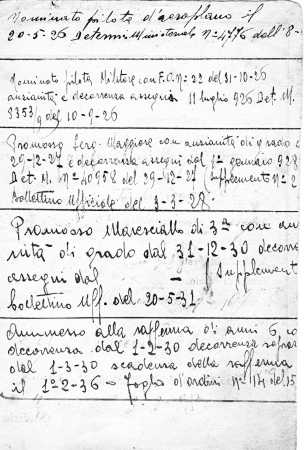 Nominato pilota d'aeroplano il
20-5-26 Determi. Ministeriale N° 4776 dell'8-
Nominato pilota Militare con F.O. N° 22 del 31-10-26
anzianità e decorrenza assegni 11 luglio 926 Det. M.
3353/9 del 10-9-26
Promosso Serg. Maggiore con anzianità di grado
29-2-27 e decorrenza assegni dal 1° gennaio 928
Det. M. N° 40958 del 29-12-27 (supplemento N° 2
Bollettino Ufficiale del 3-3-28.
Promosso Maresciallo di 3ª con an
nità di grado dal 31-12-30 decorre
assegni dal — (Supplement
bollettino Uff. del 20-5-31
Ammesso alla rafferma di anni 6, co
decorrenza dal 1-2-30 decorrenza sopras
dal 1-3-30 scadenza della rafferma
il 1°-2-36 = Foglio d'ordini N° 174 del 15